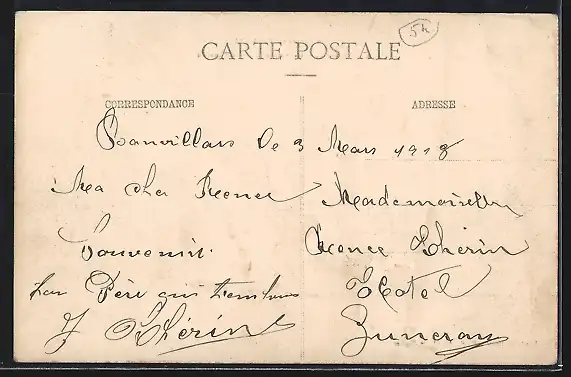 54
CARTE POSTALE
CORRESPONDANCE
ADRESSE
Banvillars le 3 Mars 1918
Ma cher Renee
Souvenir
ton Père qui t'embrasse
J Thérin
Mademoiselle
Renee Thérin
Hotel